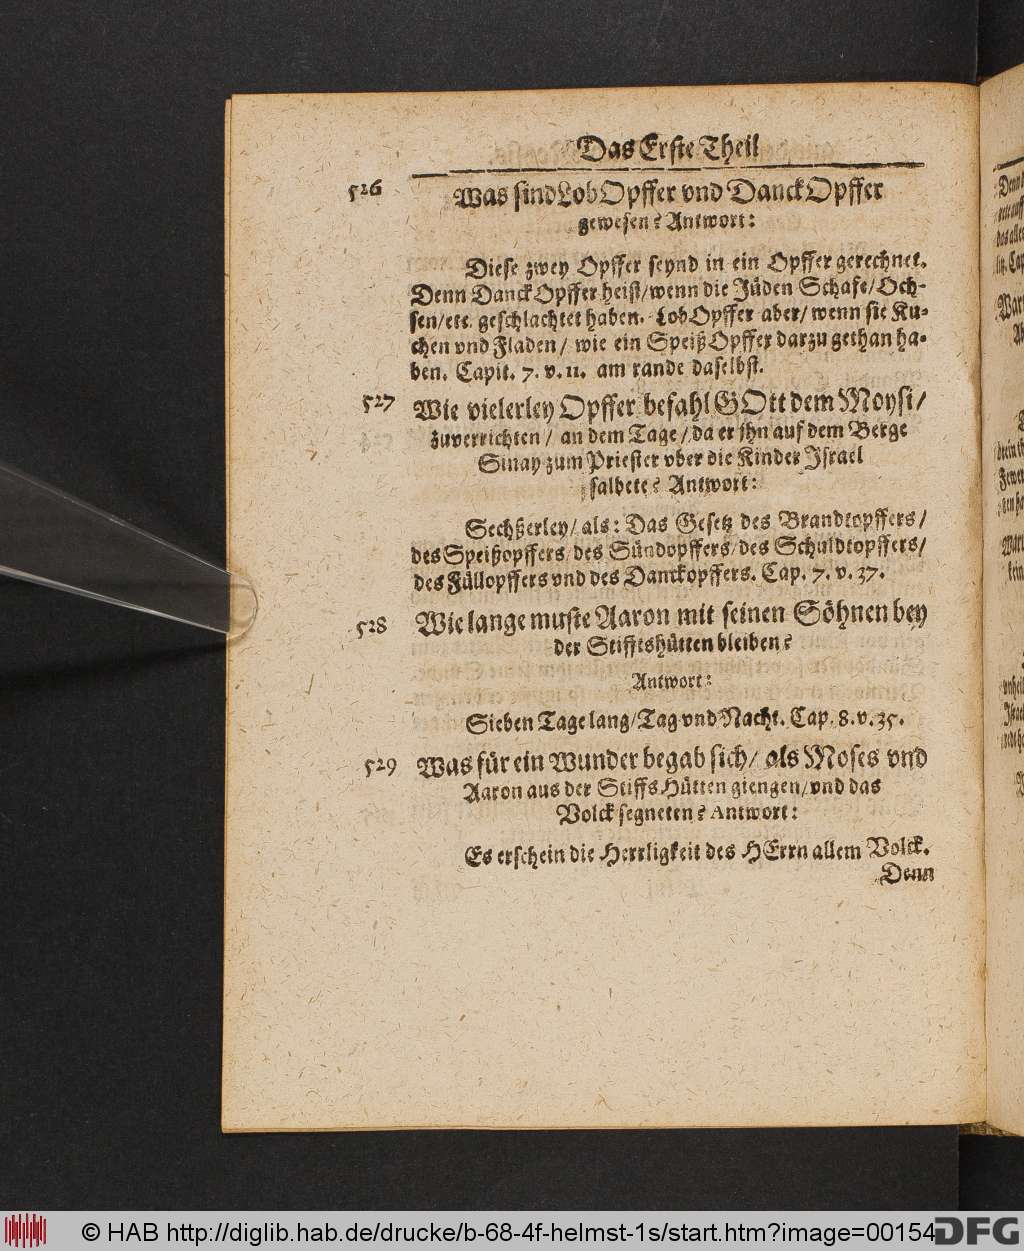 Das Erste Theil
526 Was sind LobOpffer vnd DanckOpffer
gewesen? Antwort:
Diese zwey Opffer seynd in ein Opffer gerechnet.
Denn DanckOpffer heist/wenn die Jüden Schafe/Och-
sen/etc. geschlachtet haben. LobOpffer aber/wenn sie Ku-
chen vnd Fladen/ wie ein SpeißOpffer darzu gethan ha-
ben. Capit. 7. v. 11. am rande daselbst.
527 Wie vielerley Opffer befahl GOtt dem Moysi/
zuverrichten/ an dem Tage/da er jhn auf dem Berge
Sinay zum Priester vber die Kinder Israel
salbete? Antwort:
Sechßerley/ als: Das Gesetz des Brandtopffers/
des Speißopffers/des Sündopffers/des Schuldtopffers/
des Füllopffers vnd des Danckopffers. Cap. 7. v. 37.
528 Wie lange muste Aaron mit seinen Söhnen bey
der Stifftshütten bleiben?
Antwort:
Sieben Tage lang/Tag vnd Nacht. Cap. 8. v. 35.
529 Was für ein Wunder begab sich/ als Moses vnd
Aaron aus der Stiffs Hütten giengen/vnd das
Volck segneten? Antwort:
Es erschein die Herrligkeit des HErrn allem Volck.
Denn
© HAB http://diglib.hab.de/drucke/b-68-4f-helmst-1s/start.htm?image=00154
DFG